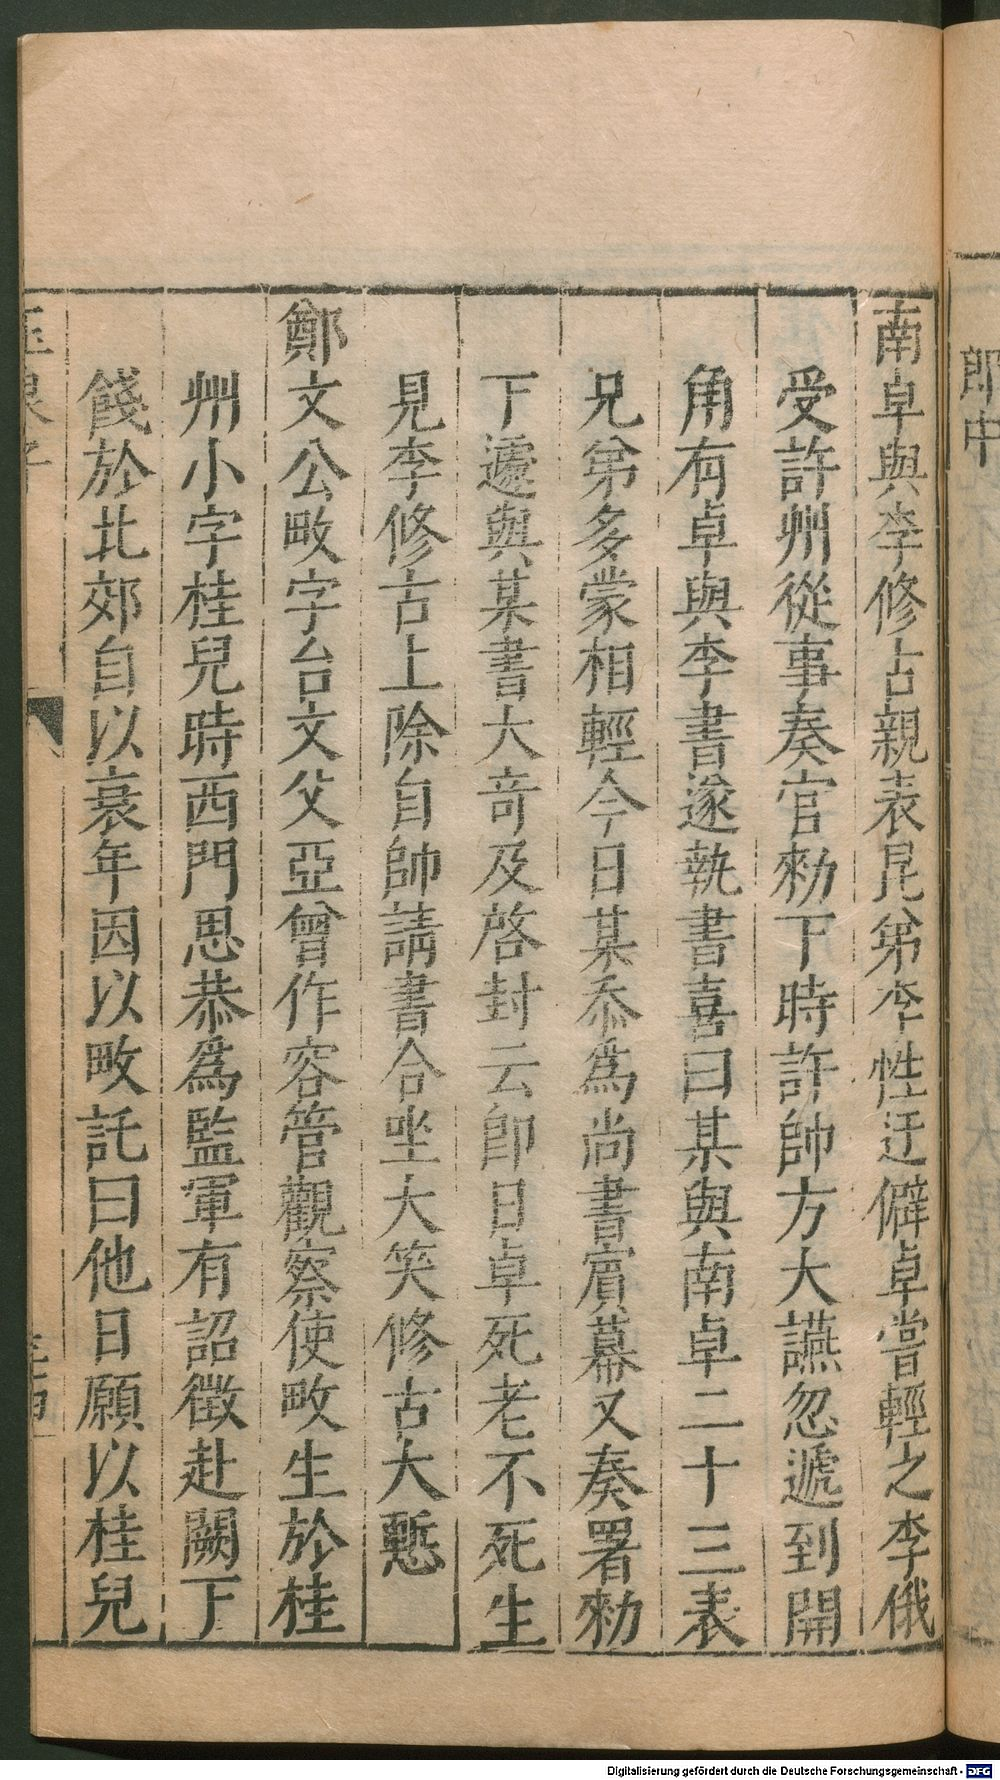 南卓與李修古親表昆弟李性迂僻卓嘗輕之李俄
受許州從事奏官勑下時許帥方大讌忽遞到開
角有卓與李書遂執書喜曰某與南卓二十三表
兄弟多蒙相輕今日某忝為尚書賓幕又奏署勑
下遽與某書大奇及啓封云卽日卓死老不死生
見李修古上除自帥請書合坐大笑修古大慙
鄭文公畋字台文父亞曾作容管觀察使畋生於桂
州小字桂兒時西門思恭為監軍有詔徵赴闕下
餞於北郊自以衰年因以畋託曰他日願以桂兒
郎中
Digitalisierung gefördert durch die Deutsche Forschungsgemeinschaft - DFG